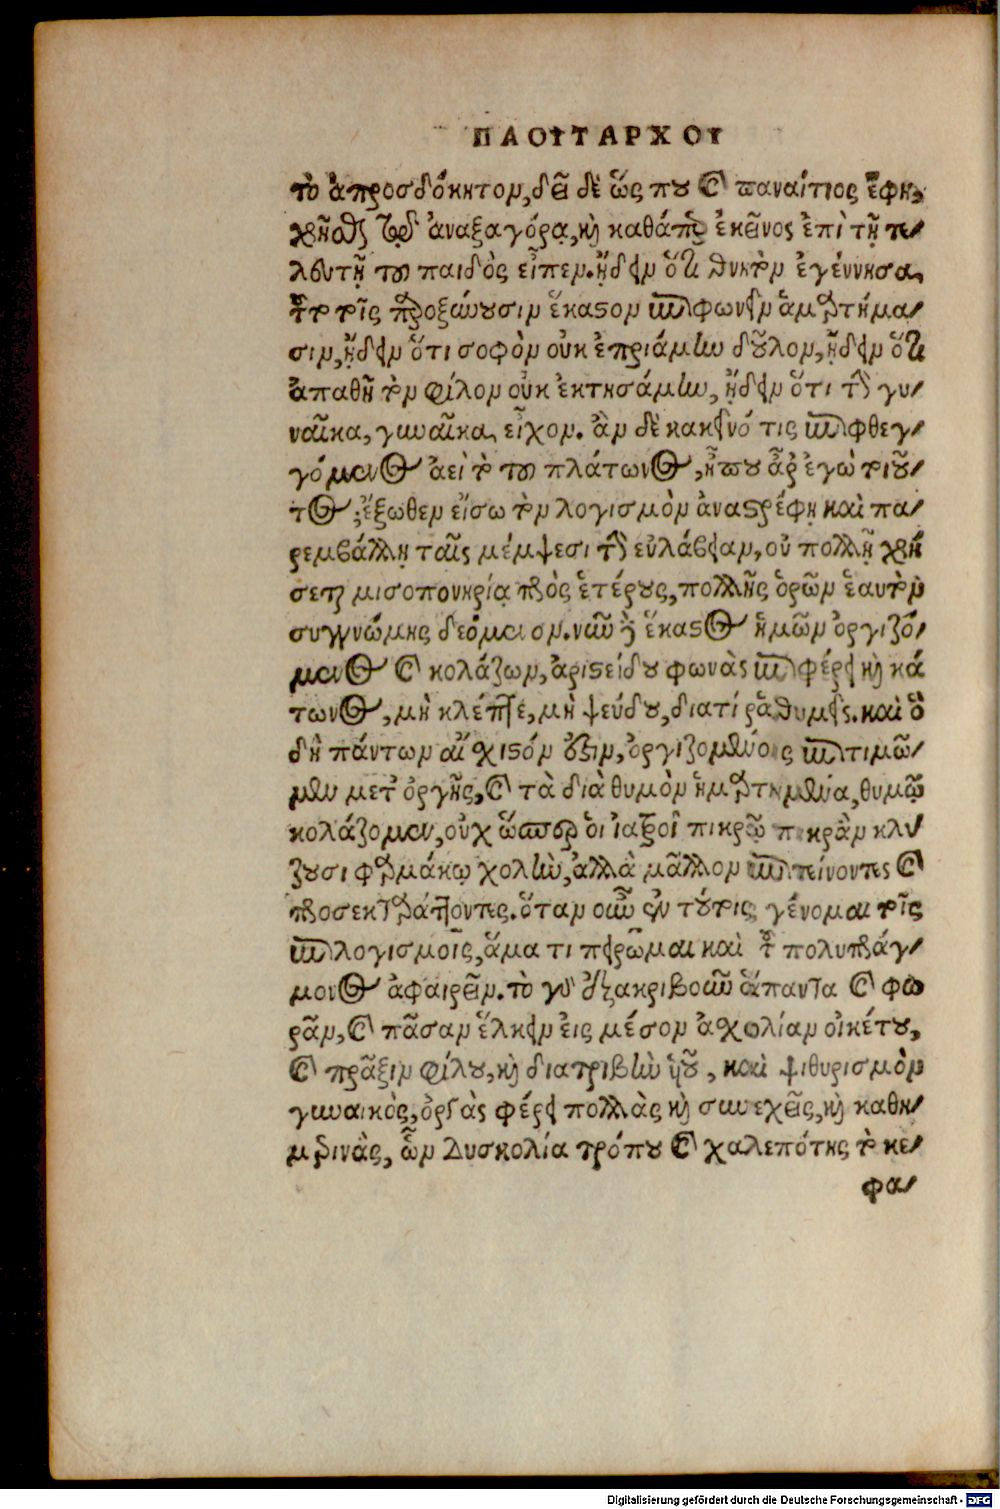 ΠΛΟΥΤΑΡΧΟΥ
τὸ ἀπροσδόκητον, δεῖ δὲ ὥς που καὶ παναίτιος ἔφη,
χρῆσθαι τῷ ἀναξαγόρᾳ, καὶ καθάπερ ἐκεῖνος ἐπὶ τῇ τε/
λευτῇ τοῦ παιδὸς εἶπεν. ᾔδειν ὅτι θνητὸν ἐγέννησα,
τοῦτο τοῖς παροξύνουσιν ἕκαστον ἐπιφωνεῖν ἁμαρτήμα/
σιν, ᾔδειν ὅτι σοφὸν οὐκ ἐπριάμην δοῦλον, ᾔδειν ὅτι
ἀπαθῆ τὸν φίλον οὐκ ἐκτησάμην, ᾔδειν ὅτι τὴν γυ/
ναῖκα, γυναῖκα, εἶχον. ἂν δὲ κακεῖνό τις ἐπιφθεγ/
γόμενος ἀεὶ τὸ τοῦ πλάτωνος, ἦπου ἆρ' ἐγὼ τοιοῦ/
τος; ἔξωθεν εἴσω τὸν λογισμὸν ἀναστρέφῃ καὶ πα/
ρεμβάλλῃ ταῖς μέμψεσι τὴν εὐλάβειαν, οὐ πολλῇ χρή
σεται μισοπονηρίᾳ πρὸς ἑτέρους, πολλῆς ὁρῶν ἑαυτὸν
συγγνώμης δεόμενον. νῦν δὲ ἕκαστος ἡμῶν ὀργιζό/
μενος καὶ κολάζων, ἀριστείδου φωνὰς ἐπιφέρει καὶ κά
τωνος, μὴ κλέπτε, μὴ ψεύδου, διατί ῥαθυμεῖς. καὶ ὃ
δὴ πάντων αἴσχιστόν ἐστιν, ὀργιζομένοις ἐπιτιμῶ/
μεν μετ' ὀργῆς, καὶ τὰ διὰ θυμὸν ἡμαρτημένα, θυμῷ
κολάζομεν, οὐχ ὥσπερ οἱ ἰατροὶ πικρῷ πικρὰν κλύ
ζουσι φαρμάκῳ χολὴν, ἀλλὰ μᾶλλον ἐπιτείνοντες καὶ
προσεκταράττοντες. ὅταν οὖν ἐν τούτοις γένομαι τοῖς
ἐπιλογισμοῖς, ἅμα τι πειρῶμαι καὶ τοῦ πολυπράγ/
μονος ἀφαιρεῖν. τὸ γὰρ ἐξακριβοῦν ἅπαντα καὶ φω
ρᾶν, καὶ πᾶσαν ἕλκειν εἰς μέσον ἀσχολίαν οἰκέτου,
καὶ πρᾶξιν φίλου, καὶ διατριβὴν υἱοῦ, καὶ ψιθυρισμὸν
γυναικὸς, ὀργὰς φέρει πολλὰς καὶ συνεχεῖς, καὶ καθη/
μερινὰς, ὧν δυσκολία τρόπου καὶ χαλεπότης τὸ κε/
φα/
Digitalisierung gefördert durch die Deutsche Forschungsgemeinschaft - DFG